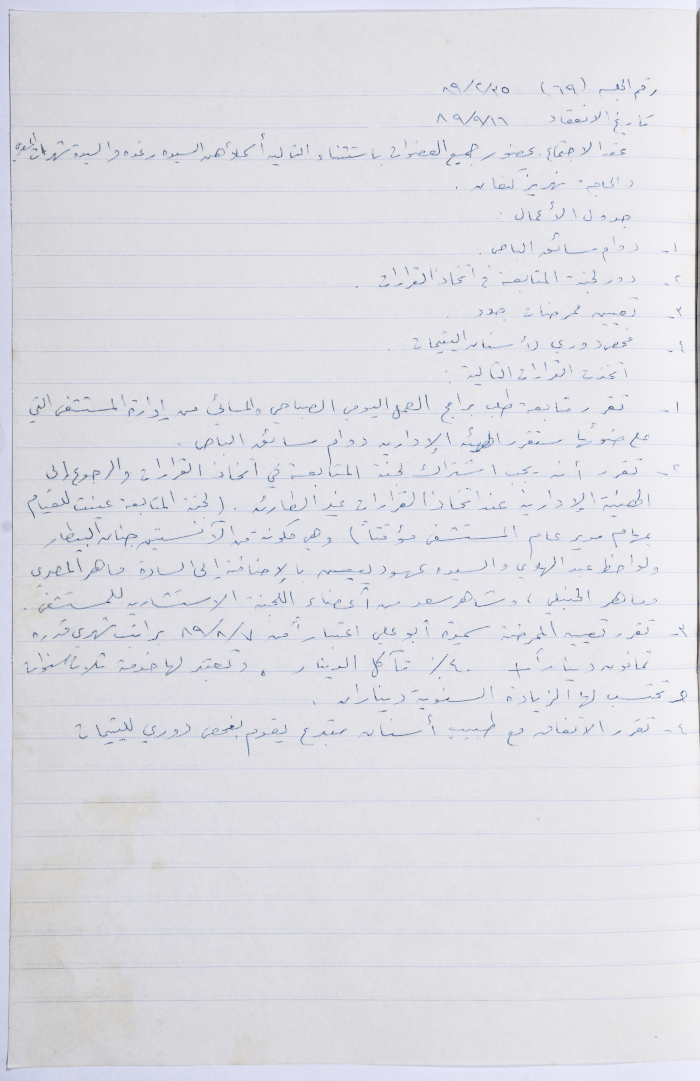 رقم الجلسة (٦٩) ٨٩/٢/٣٥
تاريخ الانعقاد ٨٩/٩/١٦
عقد الاجتماع بحضور جميع العضوات باستثناء التالية أسماؤهن السيدة رغده والسيدة شهرمان
والحاجة نهريز كنعان .
جدول الأعمال :
١- دوام سائق الباص .
٢- دور لجنة المتابعة في اتخاذ القرارات .
٣- تعيين ممرضات جدد .
٤- فحص دوري لأسنان اليتيمات .
اتخذت القرارات التالية :
١- تقرر متابعة طلب برامج العمل اليومي الصباحي والمسائي من إدارة المستشفى التي
على ضوئها ستقرر الهيئة الإدارية دوام سائق الباص .
٢- تقرر أنه يجب اشتراك لجنة المتابعة في اتخاذ القرارات والرجوع إلى
الهيئة الإدارية عند اتخاذ القرارات غير الطارئة . (لجنة المتابعة عينت للقيام
بمهام مدير عام المستشفى مؤقتاً) وهي مكونة من الآنستين جنان البيطار
ولواحظ عبد الهادي والسيدة عهود يعيش بالإضافة إلى السادة ماهر المصري
وماهر الحنبلي ، وشاهر سعد من أعضاء اللجنة الاستشارية للمستشفى .
٣- تقرر تعيين الممرضة سميرة أبو علي اعتباراً من ٨٩/٨/٧ براتب شهري قدره
ثمانون ديناراً + ٤٠٪ تآكل الدينار . وتعتبر لها خدمة ثلاث سنوات
وتحتسب لها الزيادة السنوية ديناران .
٤- تقرر الاتفاق مع طبيب أسنان متبرع يقوم بفحص دوري لليتيمات